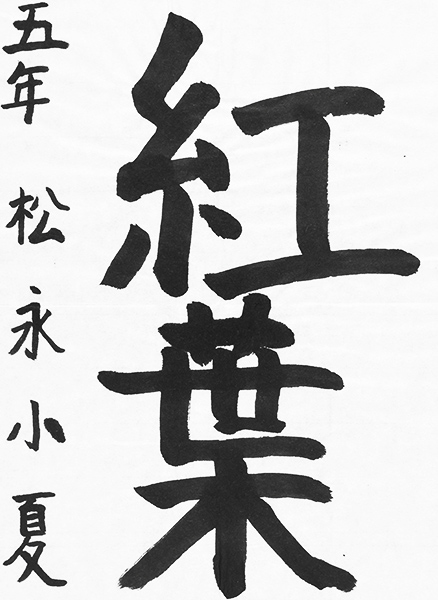 紅葉
五年 松永小夏